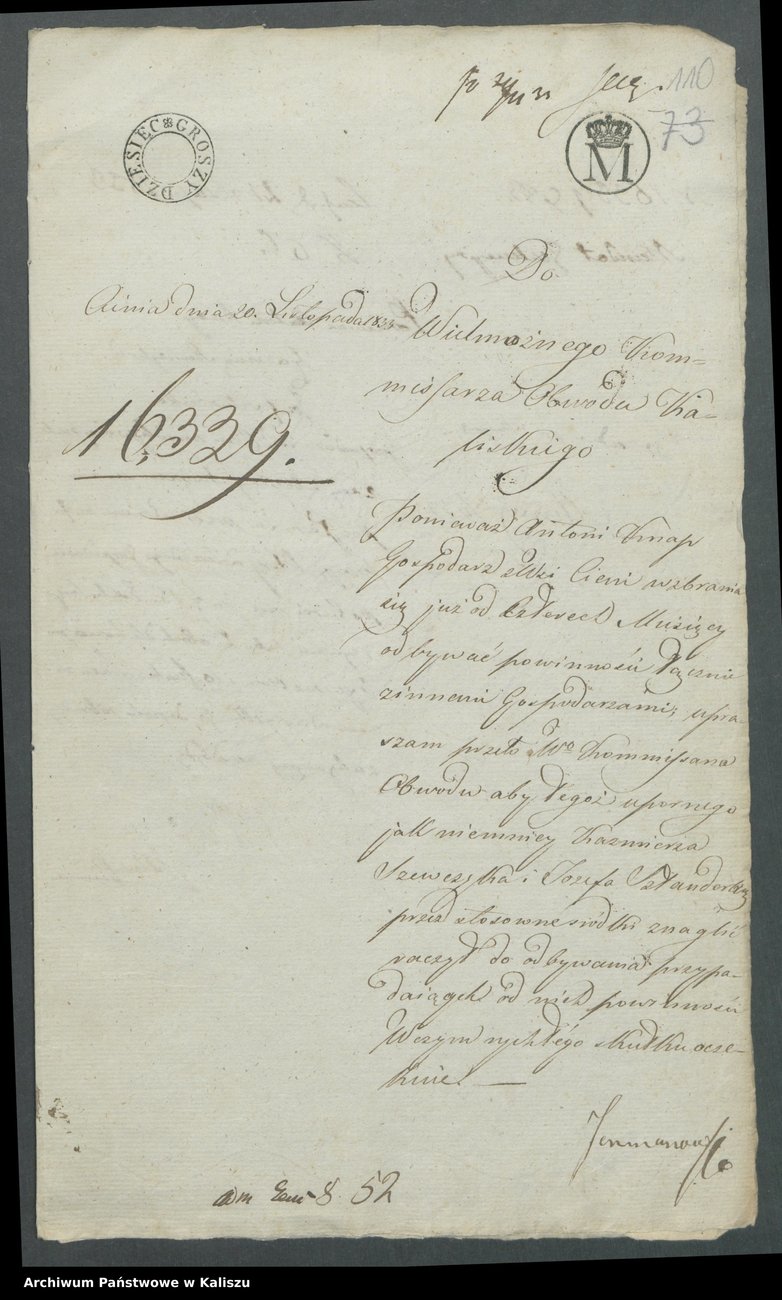 110
73
DZIESIEC GROSZY
M
Do
Cienia dnia 20. Listopada 1833
Wielmożnego Kom-
missarza Obwodu Ka-
liskiego
16,339.
Ponieważ Antoni Knap
Gospodarz z Wsi Cieni wzbrania
się już od Czterech Miesięcy
odbywać powinności łącznie
zinnemi Gospodarzami, upra-
szam przeto Wo Kommissarza
Obwodu aby tegoż upornego
jak niemniey Kazmierza
Szewczyka i Jozefa
przez stosowne srodki znaglić
raczył do odbywania przypa-
daiących od nich powinności
Wczym rychłego skutku ocze-
kuie. —
8 52
Archiwum Państwowe w Kaliszu